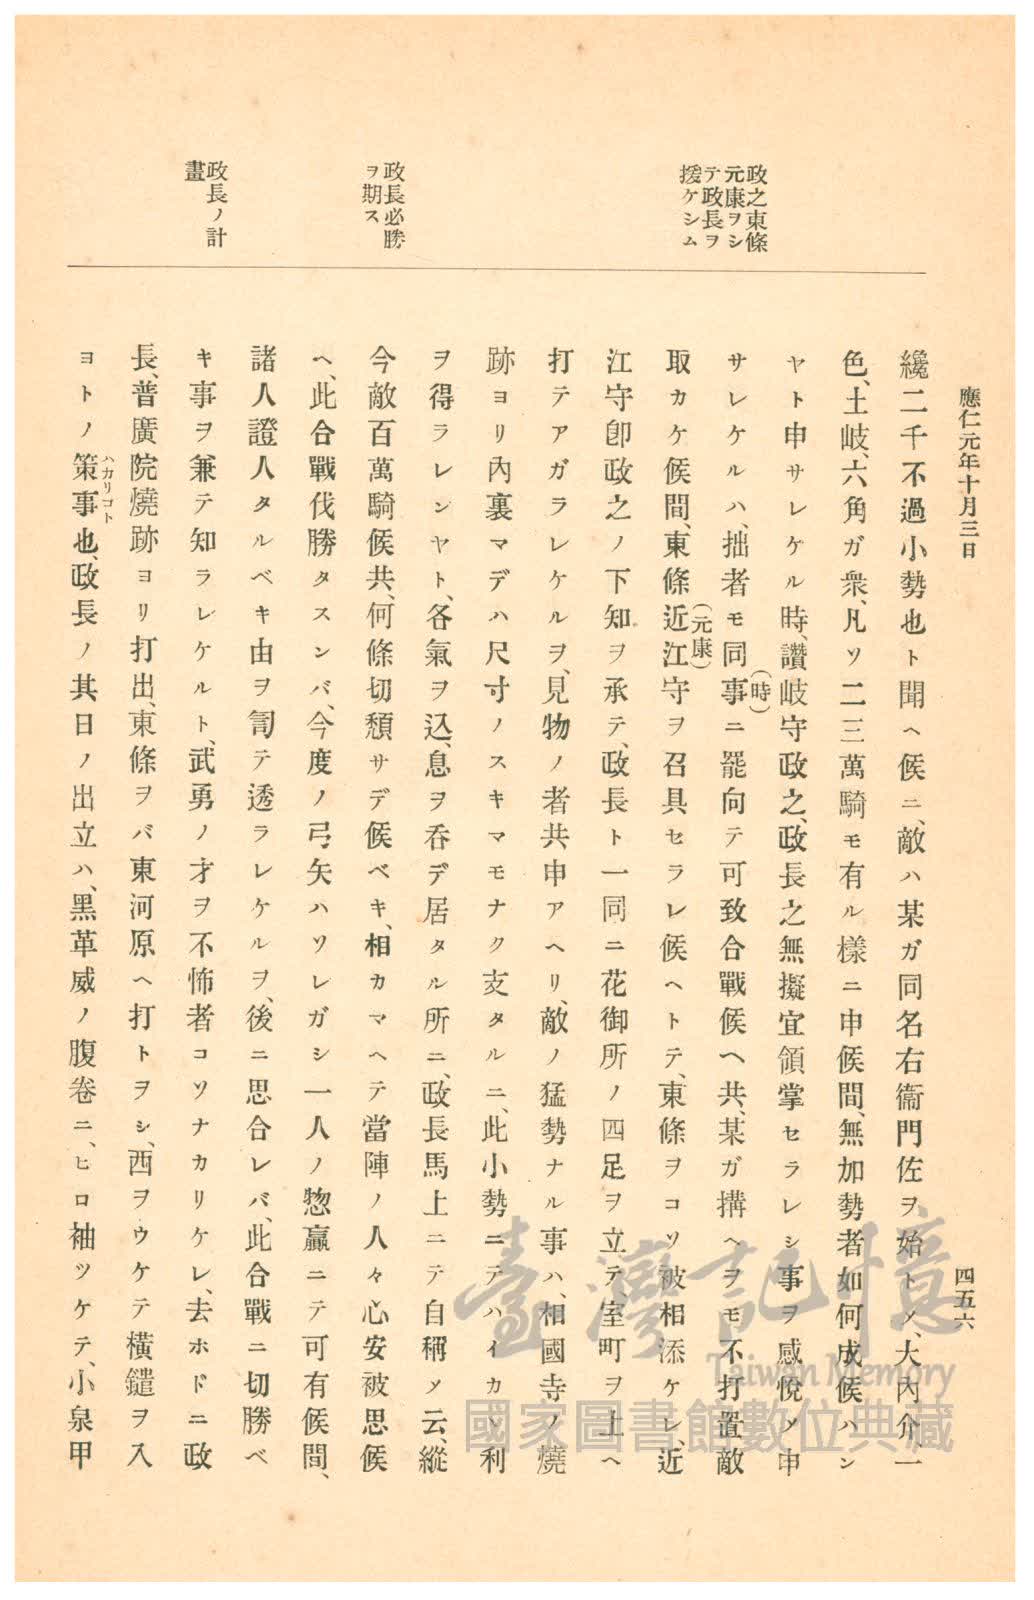 應仁元年十月三日
四五六
政之東條
元康ヲシ
テ政長ヲ
援ケシム
政長必勝
ヲ期ス
政長ノ計
畫
纔二千不過小勢也ト聞ヘ候ニ、敵ハ某ガ同名右衞門佐ヲ始トメ、大內介、一
色、土岐、六角ガ衆、凡ソ二三萬騎モ有ル樣ニ申候間、無加勢者如何成候ハン
ヤト申サレケル時、讚岐守政之、政長之無擬宜領掌セラレシ事ヲ感悅メ申
(時)
サレケルハ、拙者モ同事ニ罷向テ可致合戰候ヘ共、某ガ搆ヘヲモ不打置敵
取カケ候間、東條近江守ヲ召具セラレ候ヘトテ、東條ヲコソ被相添ケレ、近
(元康)
江守卽政之ノ下知ヲ承テ、政長ト一同ニ花御所ノ四足ヲ立テ室町ヲ上ヘ
打テアガラレケルヲ、見物ノ者共申アヘリ、敵ノ猛勢ナル事ハ、相國寺ノ燒
跡ヨリ內裏マデハ尺寸ノスキマモナク支タルニ、此小勢ニテハイカソ利
ヲ得ラレンヤト、各氣ヲ込、息ヲ吞デ居タル所ニ、政長馬上ニテ自稱メ云、縱
今敵百萬騎候共、何條切頽サデ候ベキ、相カマヘテ當陣ノ人々心安被思候
ヘ、此合戰伐勝タスンバ、今度ノ弓矢ハソレガシ一人ノ惣贏ニテ可有候間、
諸人證人タルベキ由ヲ訇テ透ラレケルヲ、後ニ思合レバ、此合戰ニ切勝ベ
キ事ヲ、兼テ知ラレケルト、武勇ノ才ヲ不怖者コソナカリケレ、去ホドニ政
長、普廣院燒跡ヨリ打出、東條ヲバ東河原ヘ打トヲシ、西ヲウケテ橫鑓ヲ入
ヨトノ策事也、政長ノ其日ノ出立ハ、黑革威ノ腹卷ニ、ヒロ袖ツケテ、小泉甲
ハカリゴト
臺灣記憶
Taiwan Memory
國家圖書館數位典藏